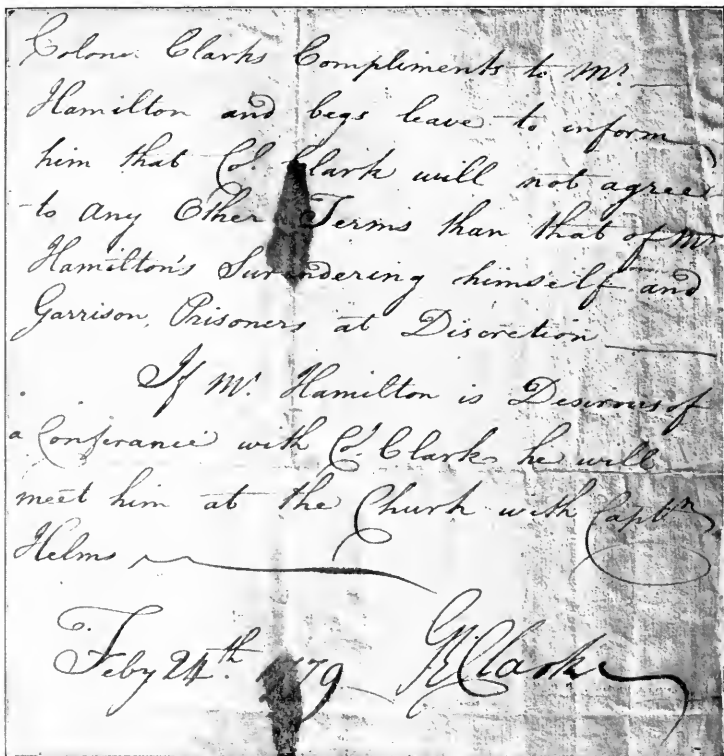 Colonel Clarks Compliments to Mr.
Hamilton and begs leave to inform
him that Col. Clark will not agree
to any Other Terms than that of Mr
Hamilton's Surendering himself and
Garrison, Prisoners at Discretion
If Mr. Hamilton is Desirous of
a Conferance with Col. Clark he will
meet him at the Churh with Captn
Helms
Feby 24th. 1779 GR Clark